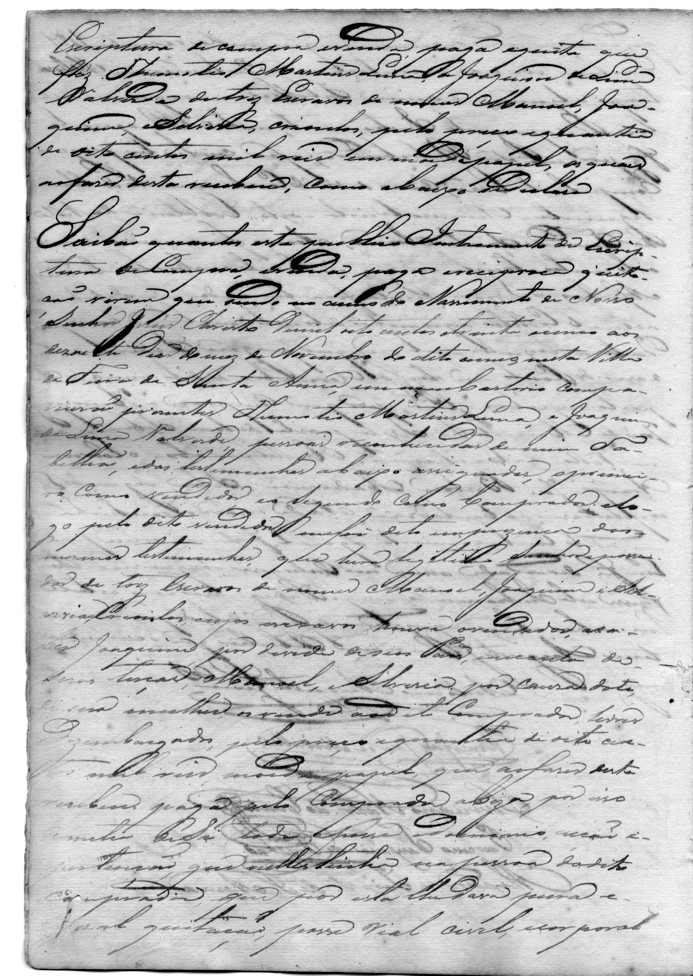 Escriptura de compra e venda, paga e quita que
faz Themotio Martins Lima, a Joaquim de Lima
Valverde de trez Escravos de nomes Manoel, Joa-
quim, e Silveria, crioulos, pelo preço e quantia
de oito centos mil reis em moeda papel, os quaes
ao fazer desta recebeu, como abaixo se declara
Saibão quantos este publico Instrumento de Escrip-
tura de Compra, e venda, paga e reciproca quita-
ção virem que sendo no anno do Nascimento de Nosso
Senhor Jesus Christo de mil oito centos e trinta e aos
dias do mez de Novembro do dito anno nesta Villa
da Feira de Santa Anna, em meu Cartorio compa-
recerão prezentes Themotio Martins Lima, e Joaquim
de Lima Valverde pessoas reconhecidas de mim Ta-
belião, e das testemunhas abaixo assignadas, o primei-
ro como vendedor e o segundo como Comprador, e lo-
go pelo dito vendedor me foi dito em prezença das
mesmas testemunhas, que he legitimo Senhor e possui-
dor de trez Escravos de nomes Manoel, Joaquim e Sil-
veria, Crioulos, cujos escravos houve o vendedor, a sa-
ber Joaquim por de seus Pais, de
seus Manoel, e Silveria, por cauza dote,
de sua mulher, os vende ao dito Comprador, livres
Dezembargados pelo preço e quantia de oito cen-
tos mil reis moeda papel, que ao fazer desta
recebeu paga pelo Comprador, por isso
toda a posse Dominio, acção e
pertenção, que nelles tinha na pessoa do dito
comprador que por esta lhe dava pura e
geral quitação, posse Rial civil, e corporal